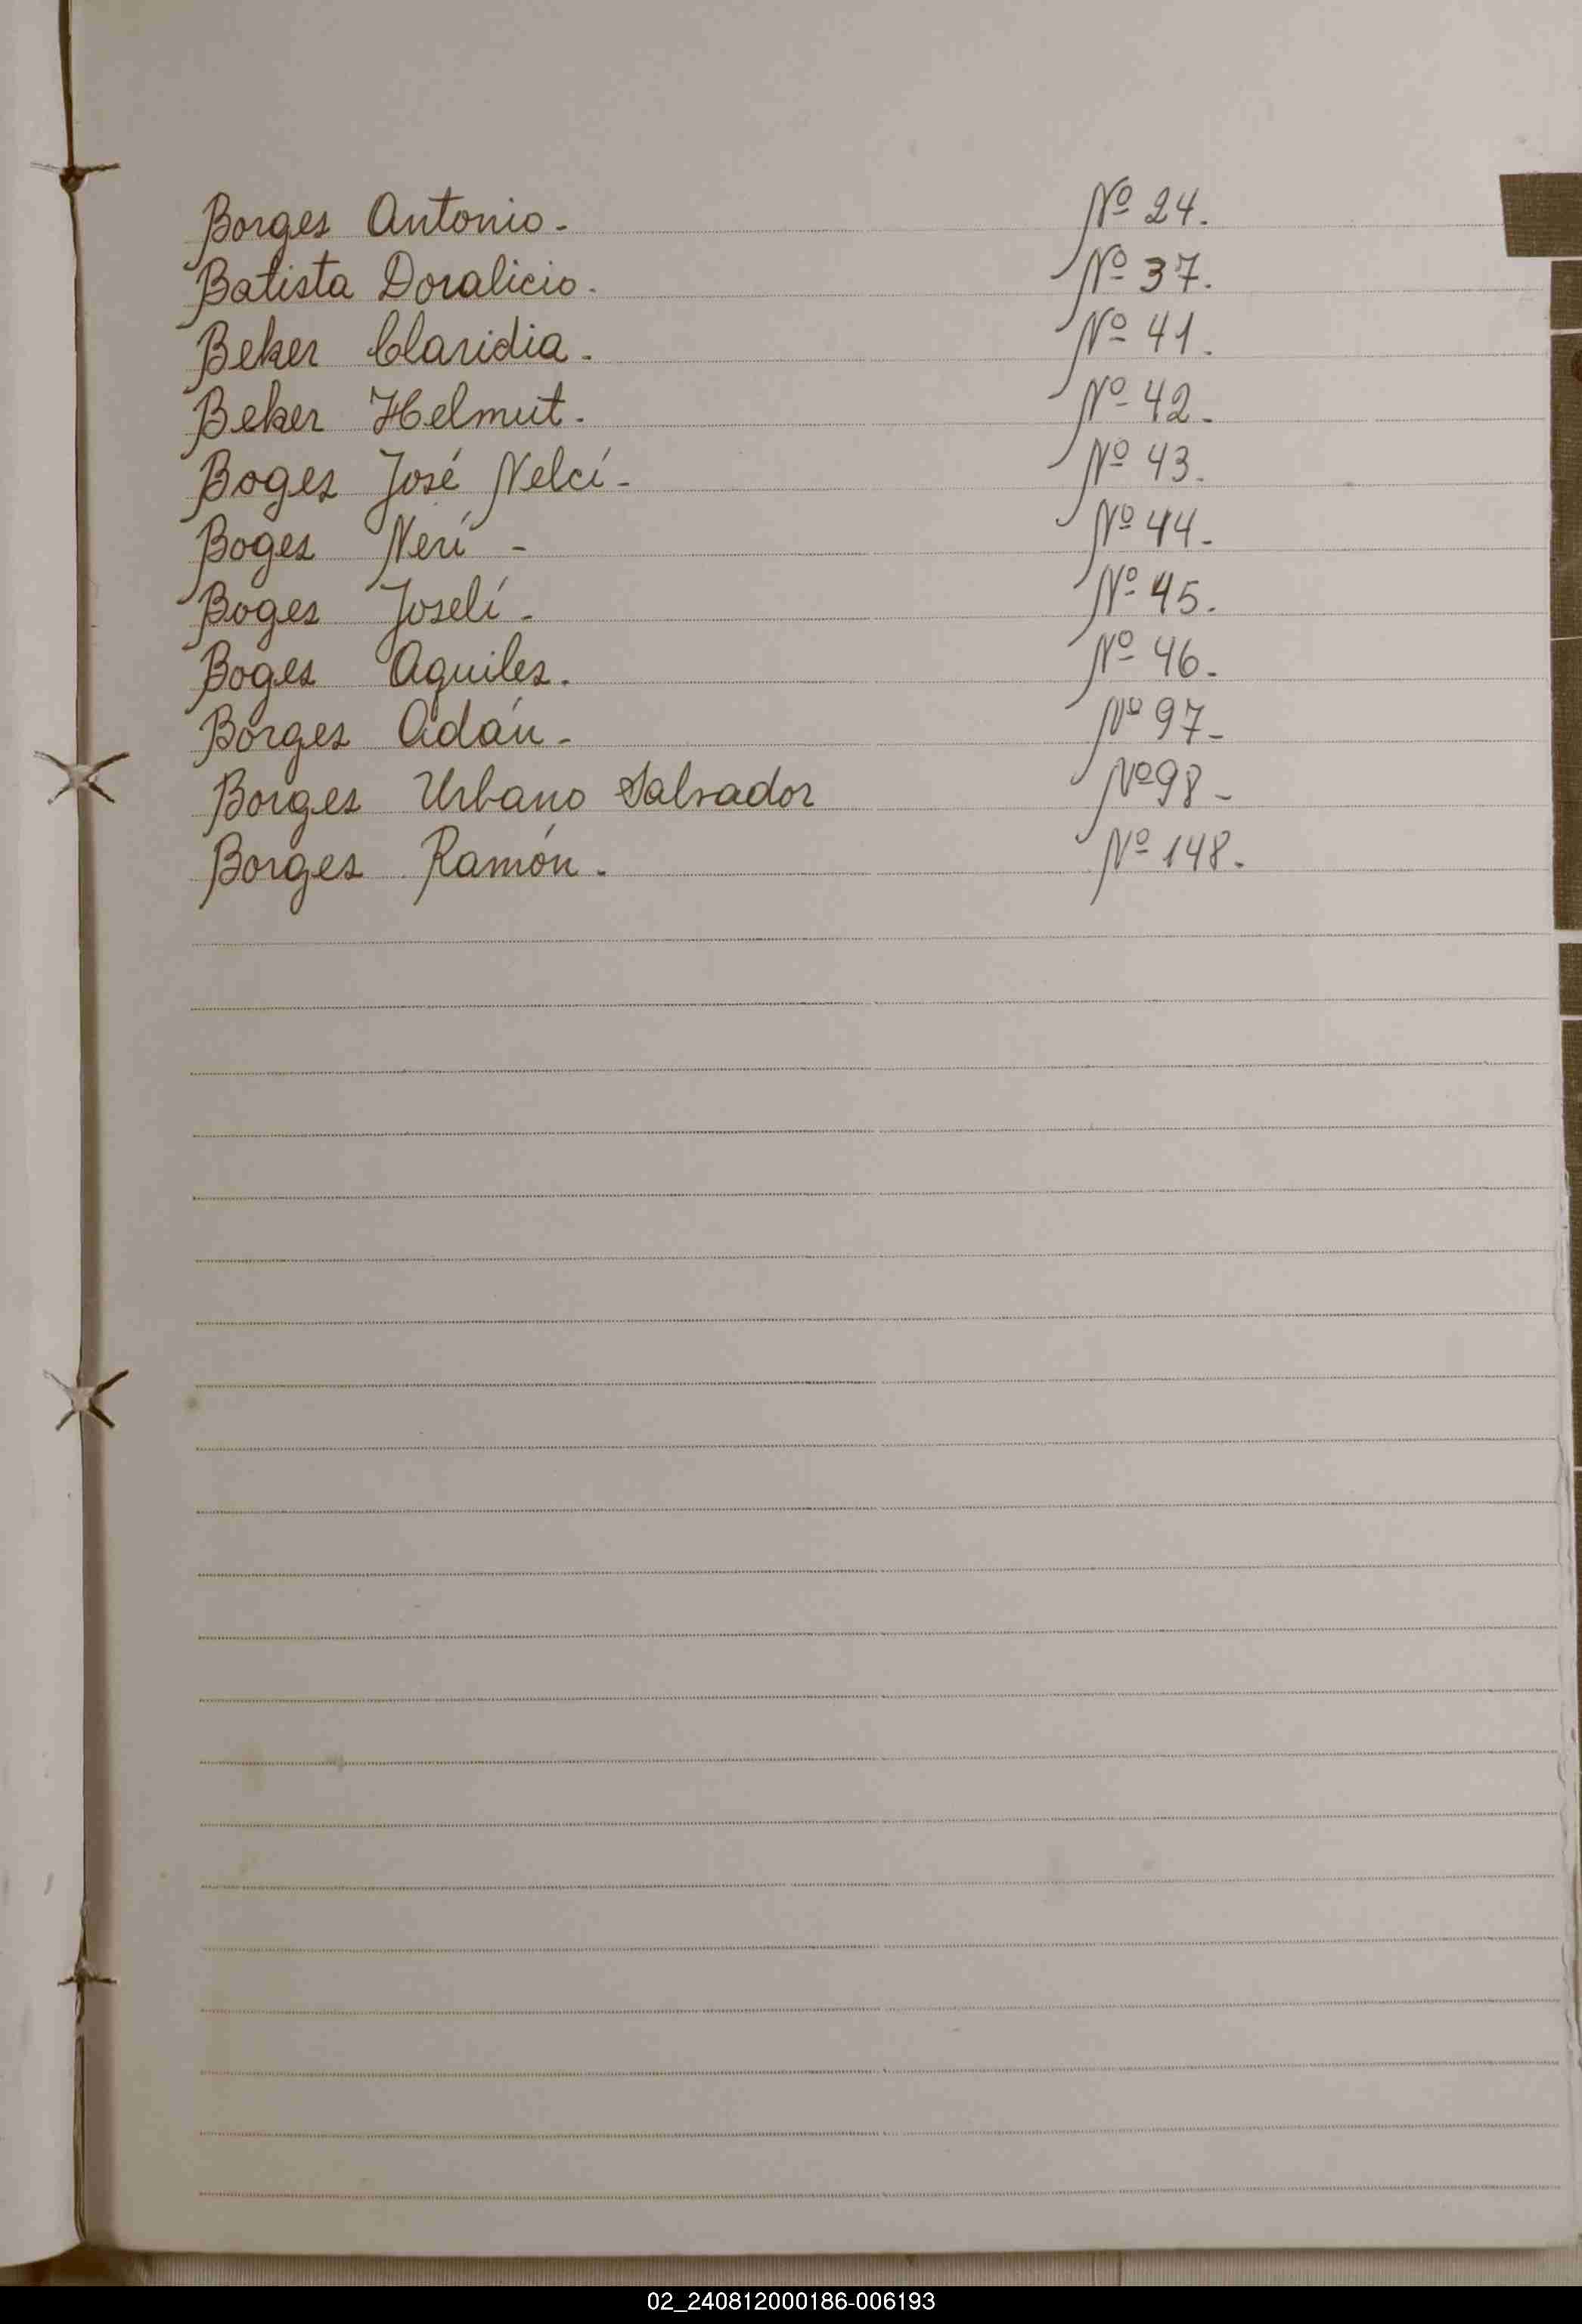 Borges Antonio - Nº 24.
Batista Doralicio. Nº 37.
Beker Claridia. Nº 41.
Beker Helmut. Nº 42.
Boges José Nelcí - Nº 43.
Boges Nerí - Nº 44.
Boges Joselí - Nº 45.
Boges Aquiles. Nº 46.
Borges Adán - Nº 97-
Borges Urbano Salvador Nº 98-
Borges Ramón. Nº 148.
02_240812000186-006193